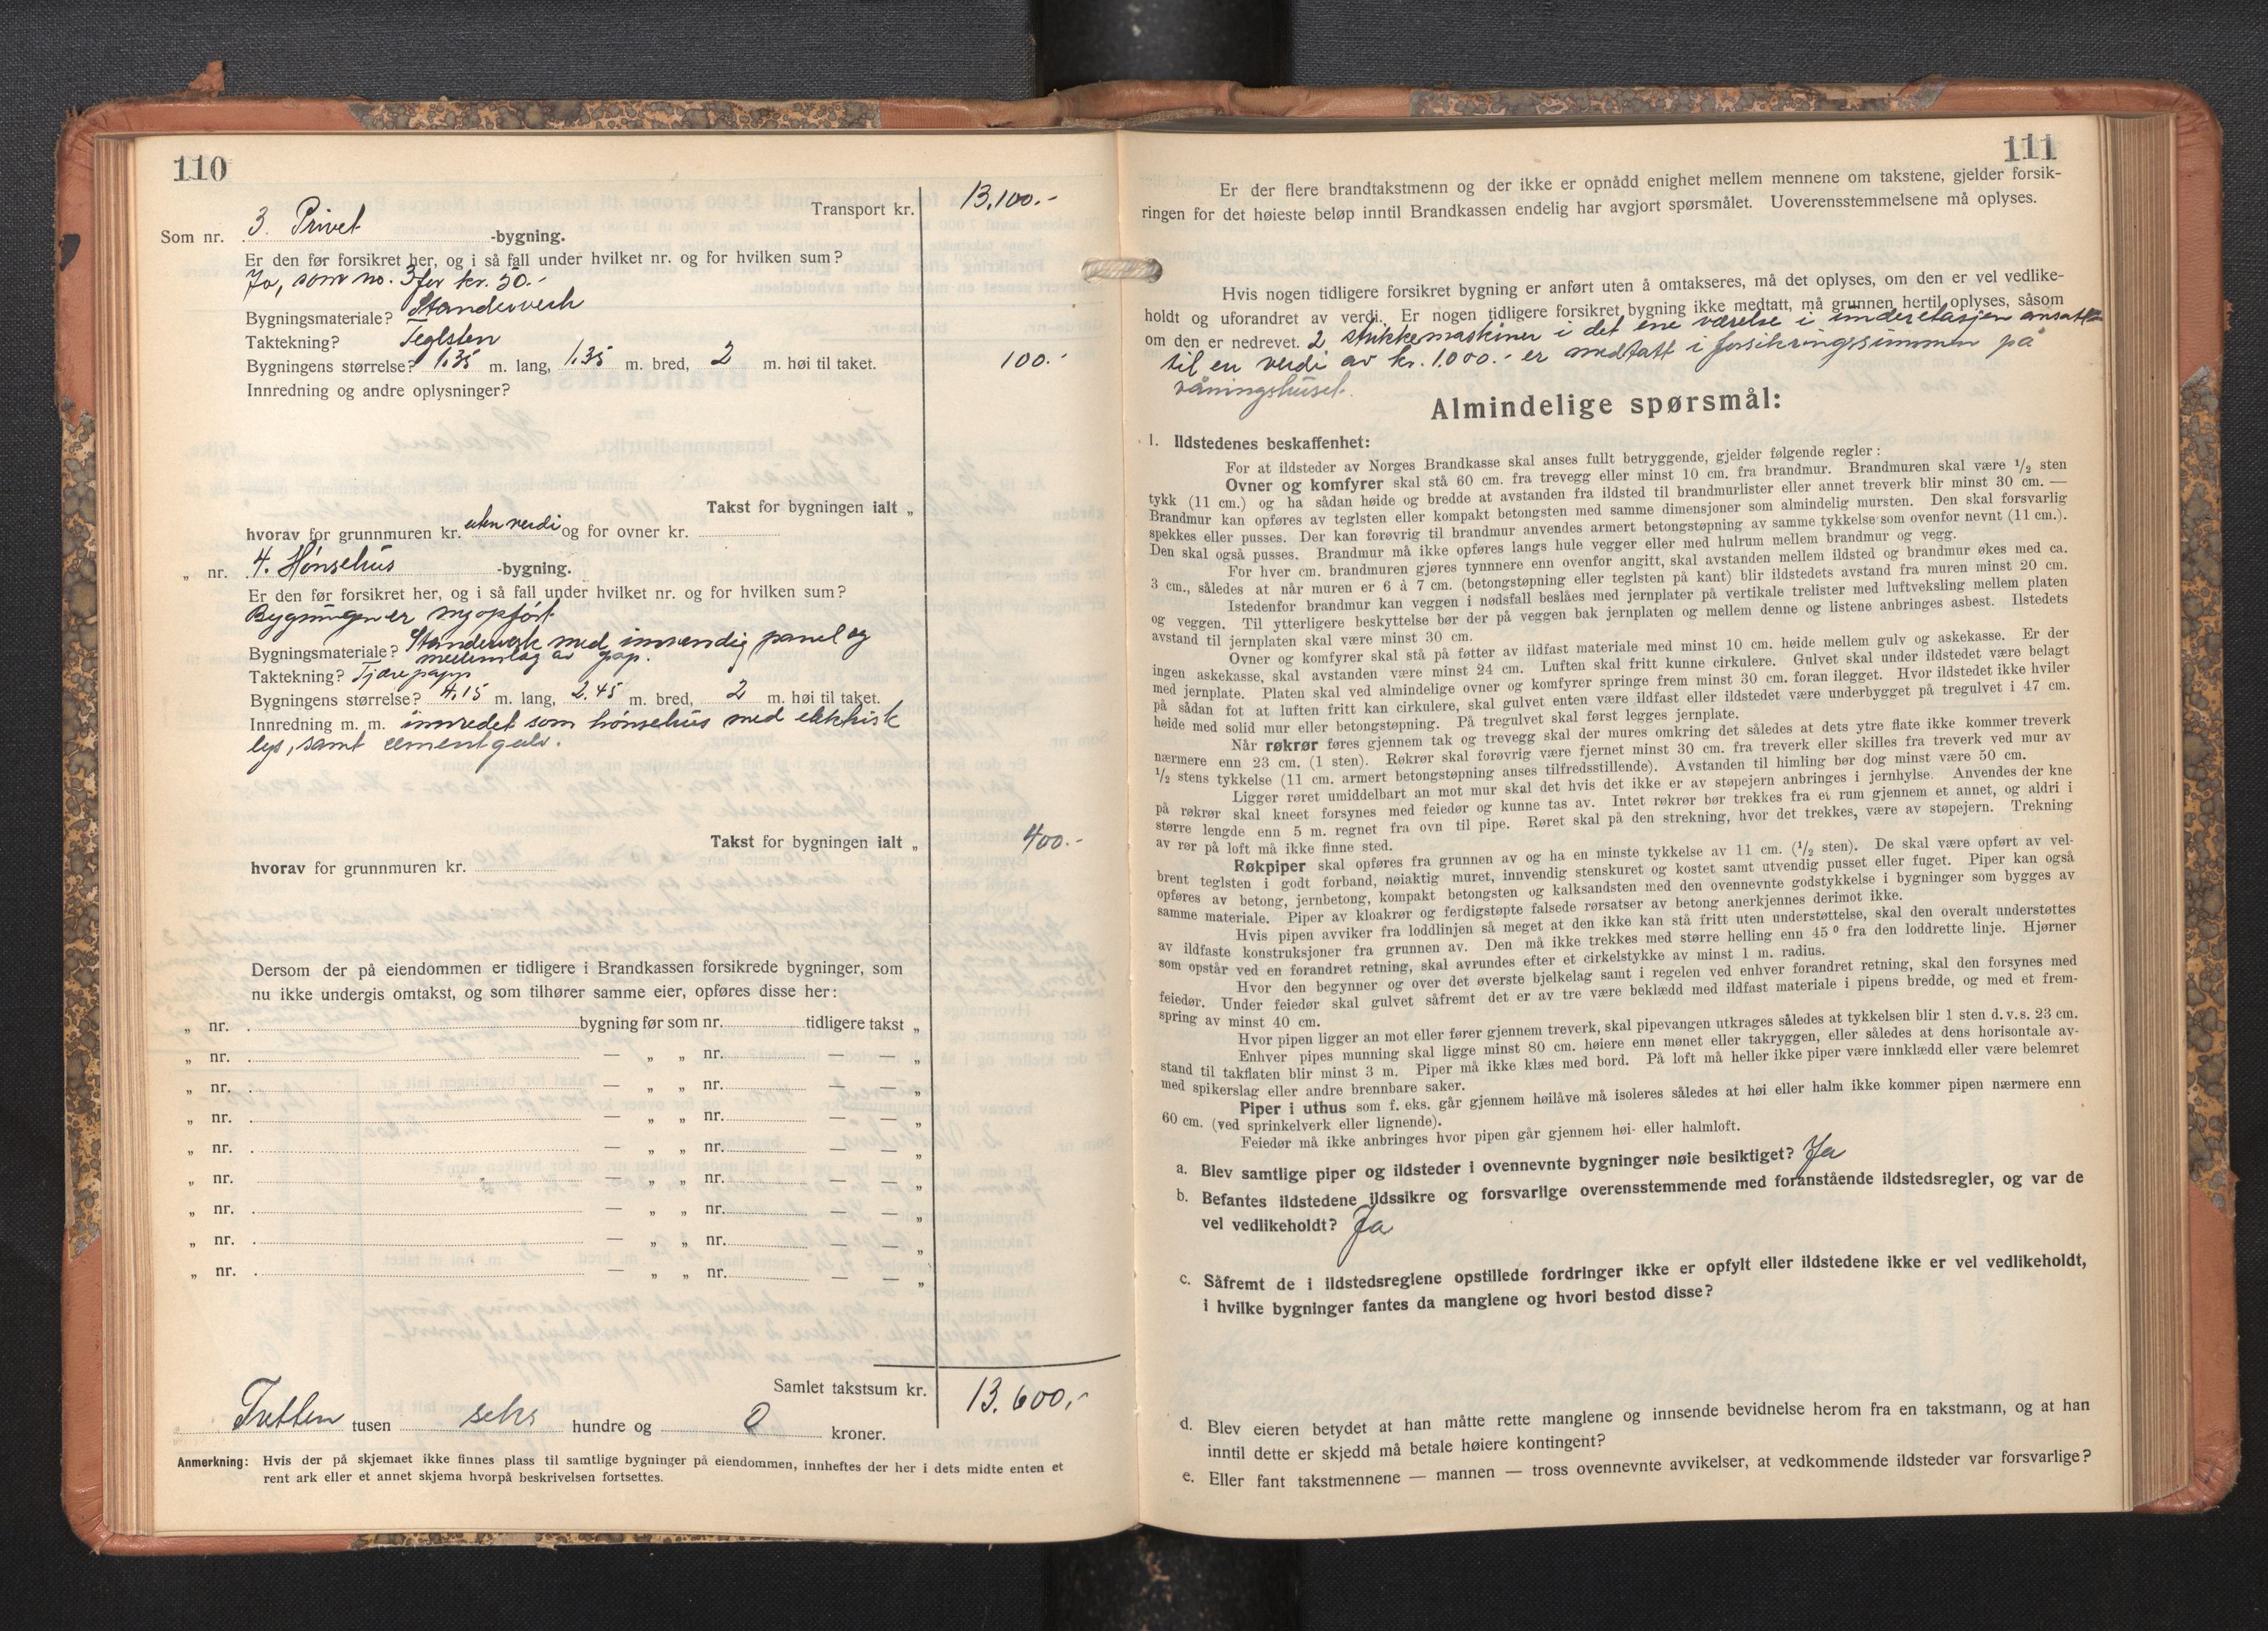 110
Transport kr. 13.100.-
Som nr. 3. Privet -bygning.
Er den før forsikret her, og i så fall under hvilket nr. og for hvilken sum?
Ja, som no. 3 for kr. 50.-
Bygningsmateriale? Standerverk
Taktekning? Teglsten
Bygningens størrelse? 1.35 m. lang, 1.35 m. bred, 2 m. høi til taket. 100.-
Innredning og andre oplysninger?
Takst for bygningen ialt „
hvorav for grunnmuren kr. uten verdi og for ovner kr.
„ nr. 4. Hönsehus -bygning.
Er den før forsikret her, og i så fall under hvilket nr. og for hvilken sum?
Bygningen er nyopført
Bygningsmateriale? Standerverk med innvendig panel og
mellemlag av pap.
Taktekning? Tjærepapp
Bygningens størrelse? 4.15 m. lang, 2.45 m. bred, 2 m. høi til taket.
Innredning m. m. innredet som hönsehus med elektrisk
lys, samt cementgulv.
Takst for bygningen ialt „ 400.-
hvorav for grunnmuren kr.
Dersom der på eiendommen er tidligere i Brandkassen forsikrede bygninger, som
nu ikke undergis omtakst, og som tilhører samme eier, opføres disse her:
„ nr. bygning før som nr. tidligere takst „
„ nr. — „ „ nr. — — „
„ nr. — „ „ nr. — — „
„ nr. — „ „ nr. — — „
„ nr. — „ „ nr. — — „
„ nr. — „ „ nr. — — „
„ nr. — „ „ nr. — — „
„ nr. — „ „ nr. — — „
„ nr. — „ „ nr. — — „
Samlet takstsum kr. 13.600.-
Tretten tusen seks hundre og 0 kroner.
Anmerkning: Hvis der på skjemaet ikke finnes plass til samtlige bygninger på eiendommen, innheftes der her i dets midte enten et
rent ark eller et annet skjema hvorpå beskrivelsen fortsettes.
111
Er der flere brandtakstmenn og der ikke er opnådd enighet mellem mennene om takstene, gjelder forsik-
ringen for det høieste beløp inntil Brandkassen endelig har avgjort spørsmålet. Uoverensstemmelsene må oplyses.
Hvis nogen tidligere forsikret bygning er anført uten å omtakseres, må det oplyses, om den er vel vedlike-
holdt og uforandret av verdi. Er nogen tidligere forsikret bygning ikke medtatt, må grunnen hertil oplyses, såsom
om den er nedrevet. 2 strikkemaskiner i det ene værelse i underetasjen ansatt
til en verdi av kr. 1.000.- er medtatt i forsikringssummen på
våningshuset.
Almindelige spørsmål:
1. Ildstedenes beskaffenhet:
For at ildsteder av Norges Brandkasse skal anses fullt betryggende, gjelder følgende regler:
Ovner og komfyrer skal stå 60 cm. fra trevegg eller minst 10 cm. fra brandmur. Brandmuren skal være ½ sten
tykk (11 cm.) og ha sådan høide og bredde at avstanden fra ildsted til brandmurlister eller annet treverk blir minst 30 cm. —
Brandmur kan opføres av teglsten eller kompakt betongsten med samme dimensjoner som almindelig mursten. Den skal forsvarlig
spekkes eller pusses. Der kan forøvrig til brandmur anvendes armert betongstøpning av samme tykkelse som ovenfor nevnt (11 cm.).
Den skal også pusses. Brandmur må ikke opføres langs hule vegger eller med hulrum mellem brandmur og vegg.
For hver cm. brandmuren gjøres tynnnere enn ovenfor angitt, skal avstanden mellem ildsted og brandmur økes med ca.
3 cm., således at når muren er 6 à 7 cm. (betongstøpning eller teglsten på kant) blir ildstedets avstand fra muren minst 20 cm.
Istedenfor brandmur kan veggen i nødsfall beslåes med jernplater på vertikale trelister med luftveksling mellem platen
og veggen. Til ytterligere beskyttelse bør der på veggen bak jernplaten og mellem denne og listene anbringes asbest. Ilstedets
avstand til jernplaten skal være minst 30 cm.
Ovner og komfyrer skal stå på føtter av ildfast materiale med minst 10 cm. høide mellem gulv og askekasse. Er der
ingen askekasse, skal avstanden være minst 24 cm. Luften skal fritt kunne cirkulere. Gulvet skal under ildstedet være belagt
med jernplate. Platen skal ved almindelige ovner og komfyrer springe frem minst 30 cm. foran ilegget. Hvor ildstedet ikke hviler
på sådan fot at luften fritt kan cirkulere, skal gulvet enten være ildfast eller ildstedet være underbygget på tregulvet i 47 cm.
høide med solid mur eller betongstøpning. På tregulvet skal først legges jernplate.
Når røkrør føres gjennem tak og trevegg skal der mures omkring det således at dets ytre flate ikke kommer treverk
nærmere enn 23 cm. (1 sten). Røkrør skal forøvrig være fjernet minst 30 cm. fra treverk eller skilles fra treverk ved mur av
½ stens tykkelse (11 cm. armert betongstøpning anses tilfredsstillende). Avstanden til himling bør dog minst være 50 cm.
Ligger røret umiddelbart an mot mur skal det hvis det ikke er av støpejern anbringes i jernhylse. Anvendes der kne
på røkrør skal kneet forsynes med feiedør og kunne tas av. Intet røkrør bør trekkes fra et rum gjennem et annet, og aldri i
større lengde enn 5 m. regnet fra ovn til pipe. Røret skal på den strekning, hvor det trekkes, være av støpejern. Trekning
av rør på loft må ikke finne sted.
Røkpiper skal opføres fra grunnen av og ha en minste tykkelse av 11 cm. (½ sten). De skal være opført av vel-
brent teglsten i godt forband, nøiaktig muret, innvendig stenskuret og kostet samt utvendig pusset eller fuget. Piper kan også
opføres av betong, jernbetong, kompakt betongsten og kalksandsten med den ovennevnte godstykkelse i bygninger som bygges av
samme materiale. Piper av kloakrør og ferdigstøpte falsede rørsatser av betong anerkjennes derimot ikke.
Hvis pipen avviker fra loddlinjen så meget at den ikke kan stå fritt uten understøttelse, skal den overalt understøttes
av ildfaste konstruksjoner fra grunnen av. Den må ikke trekkes med større helling enn 45⁰ fra den loddrette linje. Hjørner
som opstår ved en forandret retning, skal avrundes efter et cirkelstykke av minst 1 m. radius.
Hvor den begynner og over det øverste bjelkelag samt i regelen ved enhver forandret retning, skal den forsynes med
feiedør. Under feiedør skal gulvet såfremt det er av tre være beklædd med ildfast materiale i pipens bredde, og med et frem-
spring av minst 40 cm.
Hvor pipen ligger an mot eller fører gjennem treverk, skal pipevangen utkrages således at tykkelsen blir 1 sten d. v. s. 23 cm.
Enhver pipes munning skal ligge minst 80 cm. høiere enn mønet eller takryggen, eller således at dens horisontale av-
stand til takflaten blir minst 3 m. Piper må ikke klæs med bord. På loft må heller ikke piper være innklædd eller være belemret
med spikerslag eller andre brennbare saker.
Piper i uthus som f. eks. går gjennem høilåve må isoleres således at høi eller halm ikke kommer pipen nærmere enn
60 cm. (ved sprinkelverk eller lignende).
Feiedør må ikke anbringes hvor pipen går gjennem høi- eller halmloft.
a. Blev samtlige piper og ildsteder i ovennevnte bygninger nøie besiktiget? Ja
b. Befantes ildstedene ildssikre og forsvarlige overensstemmende med foranstående ildstedsregler, og var de
vel vedlikeholdt? Ja
c. Såfremt de i ildstedsreglene opstillede fordringer ikke er opfylt eller ildstedene ikke er vel vedlikeholdt,
i hvilke bygninger fantes da manglene og hvori bestod disse?
d. Blev eieren betydet at han måtte rette manglene og innsende bevidnelse herom fra en takstmann, og at han
inntil dette er skjedd må betale høiere kontingent?
e. Eller fant takstmennene — mannen — tross ovennevnte avvikelser, at vedkommende ildsteder var forsvarlige?